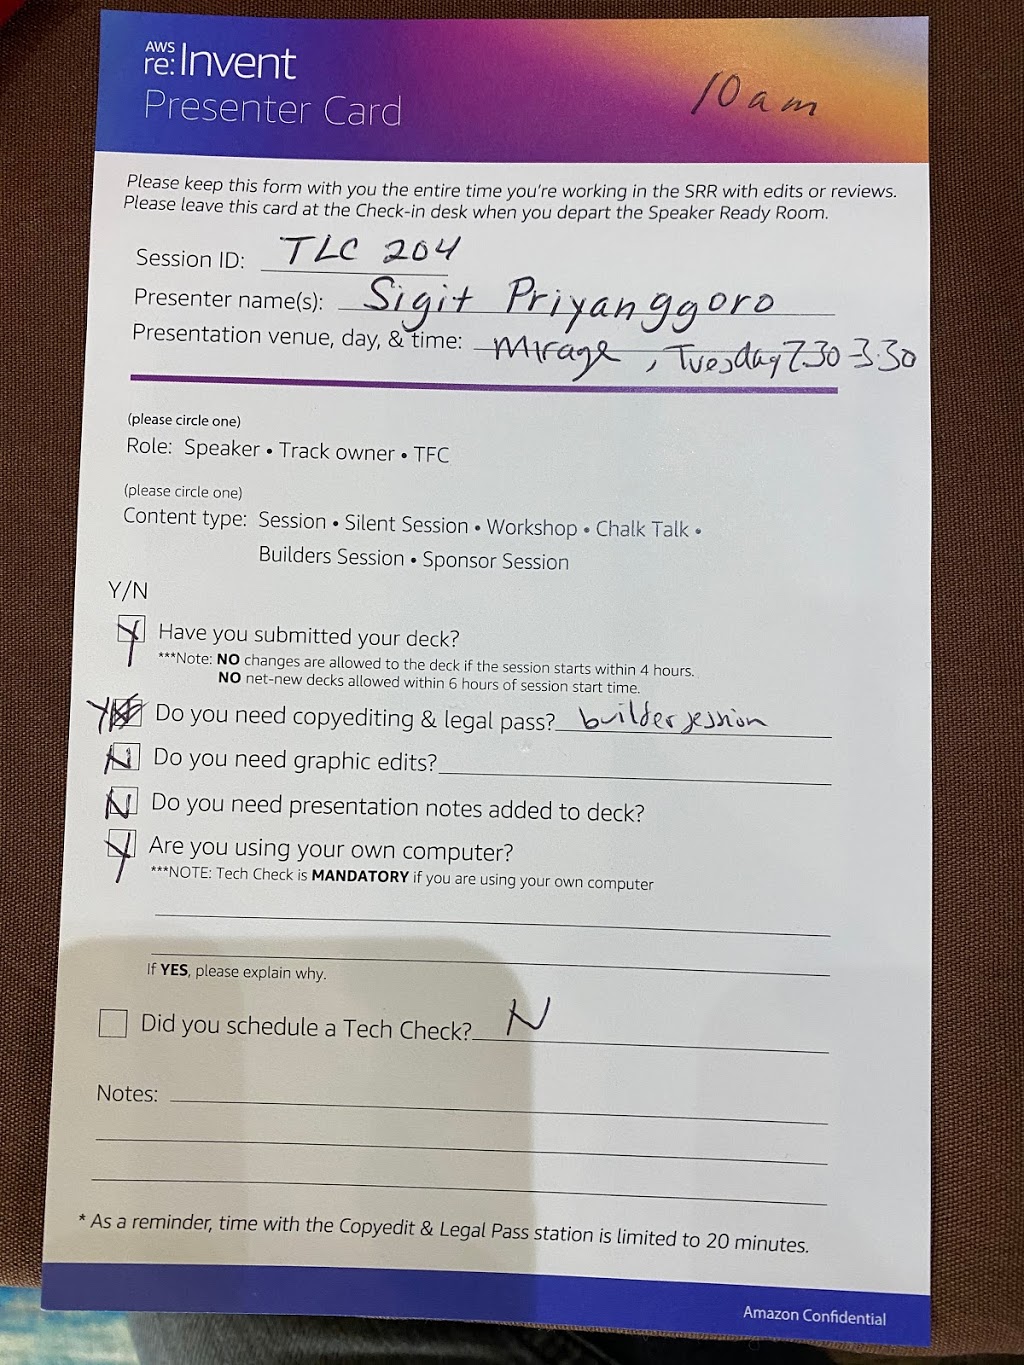 AWS
re:Invent
Presenter Card
10 am
Please keep this form with you the entire time you're working in the SRR with edits or reviews.
Please leave this card at the Check-in desk when you depart the Speaker Ready Room.
Session ID: TLC 204
Presenter name(s): Sigit Priyanggoro
Presentation venue, day, & time: Mirage, Tuesday 2.30-3.30
(please circle one)
Role: Speaker • Track owner • TFC
(please circle one)
Content type: Session • Silent Session • Workshop • Chalk Talk •
Builders Session • Sponsor Session
Y/N
Y Have you submitted your deck?
***Note: NO changes are allowed to the deck if the session starts within 4 hours.
NO net-new decks allowed within 6 hours of session start time.
Y Do you need copyediting & legal pass? builder session
N Do you need graphic edits?
N Do you need presentation notes added to deck?
Y Are you using your own computer?
***NOTE: Tech Check is MANDATORY if you are using your own computer
If YES, please explain why.
Did you schedule a Tech Check? N
Notes:
* As a reminder, time with the Copyedit & Legal Pass station is limited to 20 minutes.
Amazon Confidential